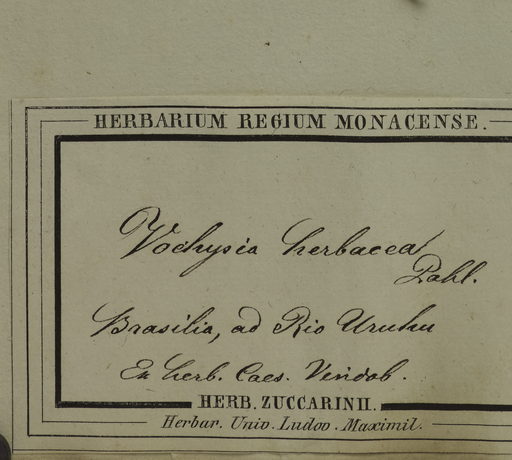 HERBARIUM REGIUM MONACENSE.
Vochysia herbacea
Pohl.
Brasilia, ad Rio Uruhu
Ex herb. Caes. Vindob.
HERB. ZUCCARINII.
Herbar. Univ. Ludov. Maximil.